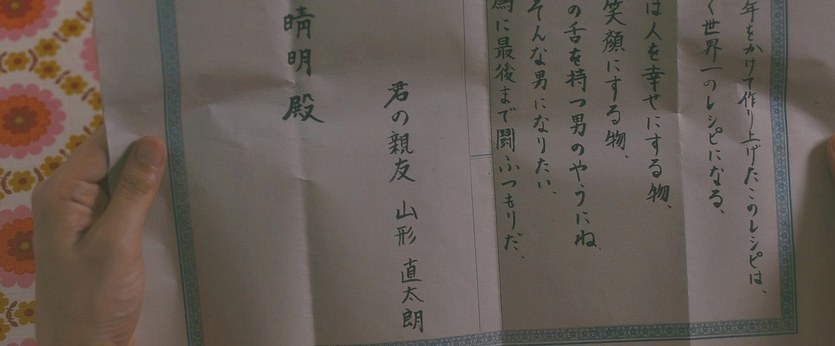 年をかけて作り上げたこのレシピは、
く世界一のレシピになる、
は人を幸せにする物、
笑顔にする物、
の舌を持つ男のやうにね、
そんな男になりたい、
為に最後まで闘ふつもりだ、
君の親友 山形 直太朗
晴明 殿